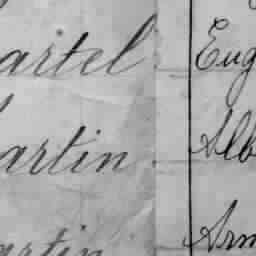 artel Eug
artin Alb
artin Arm